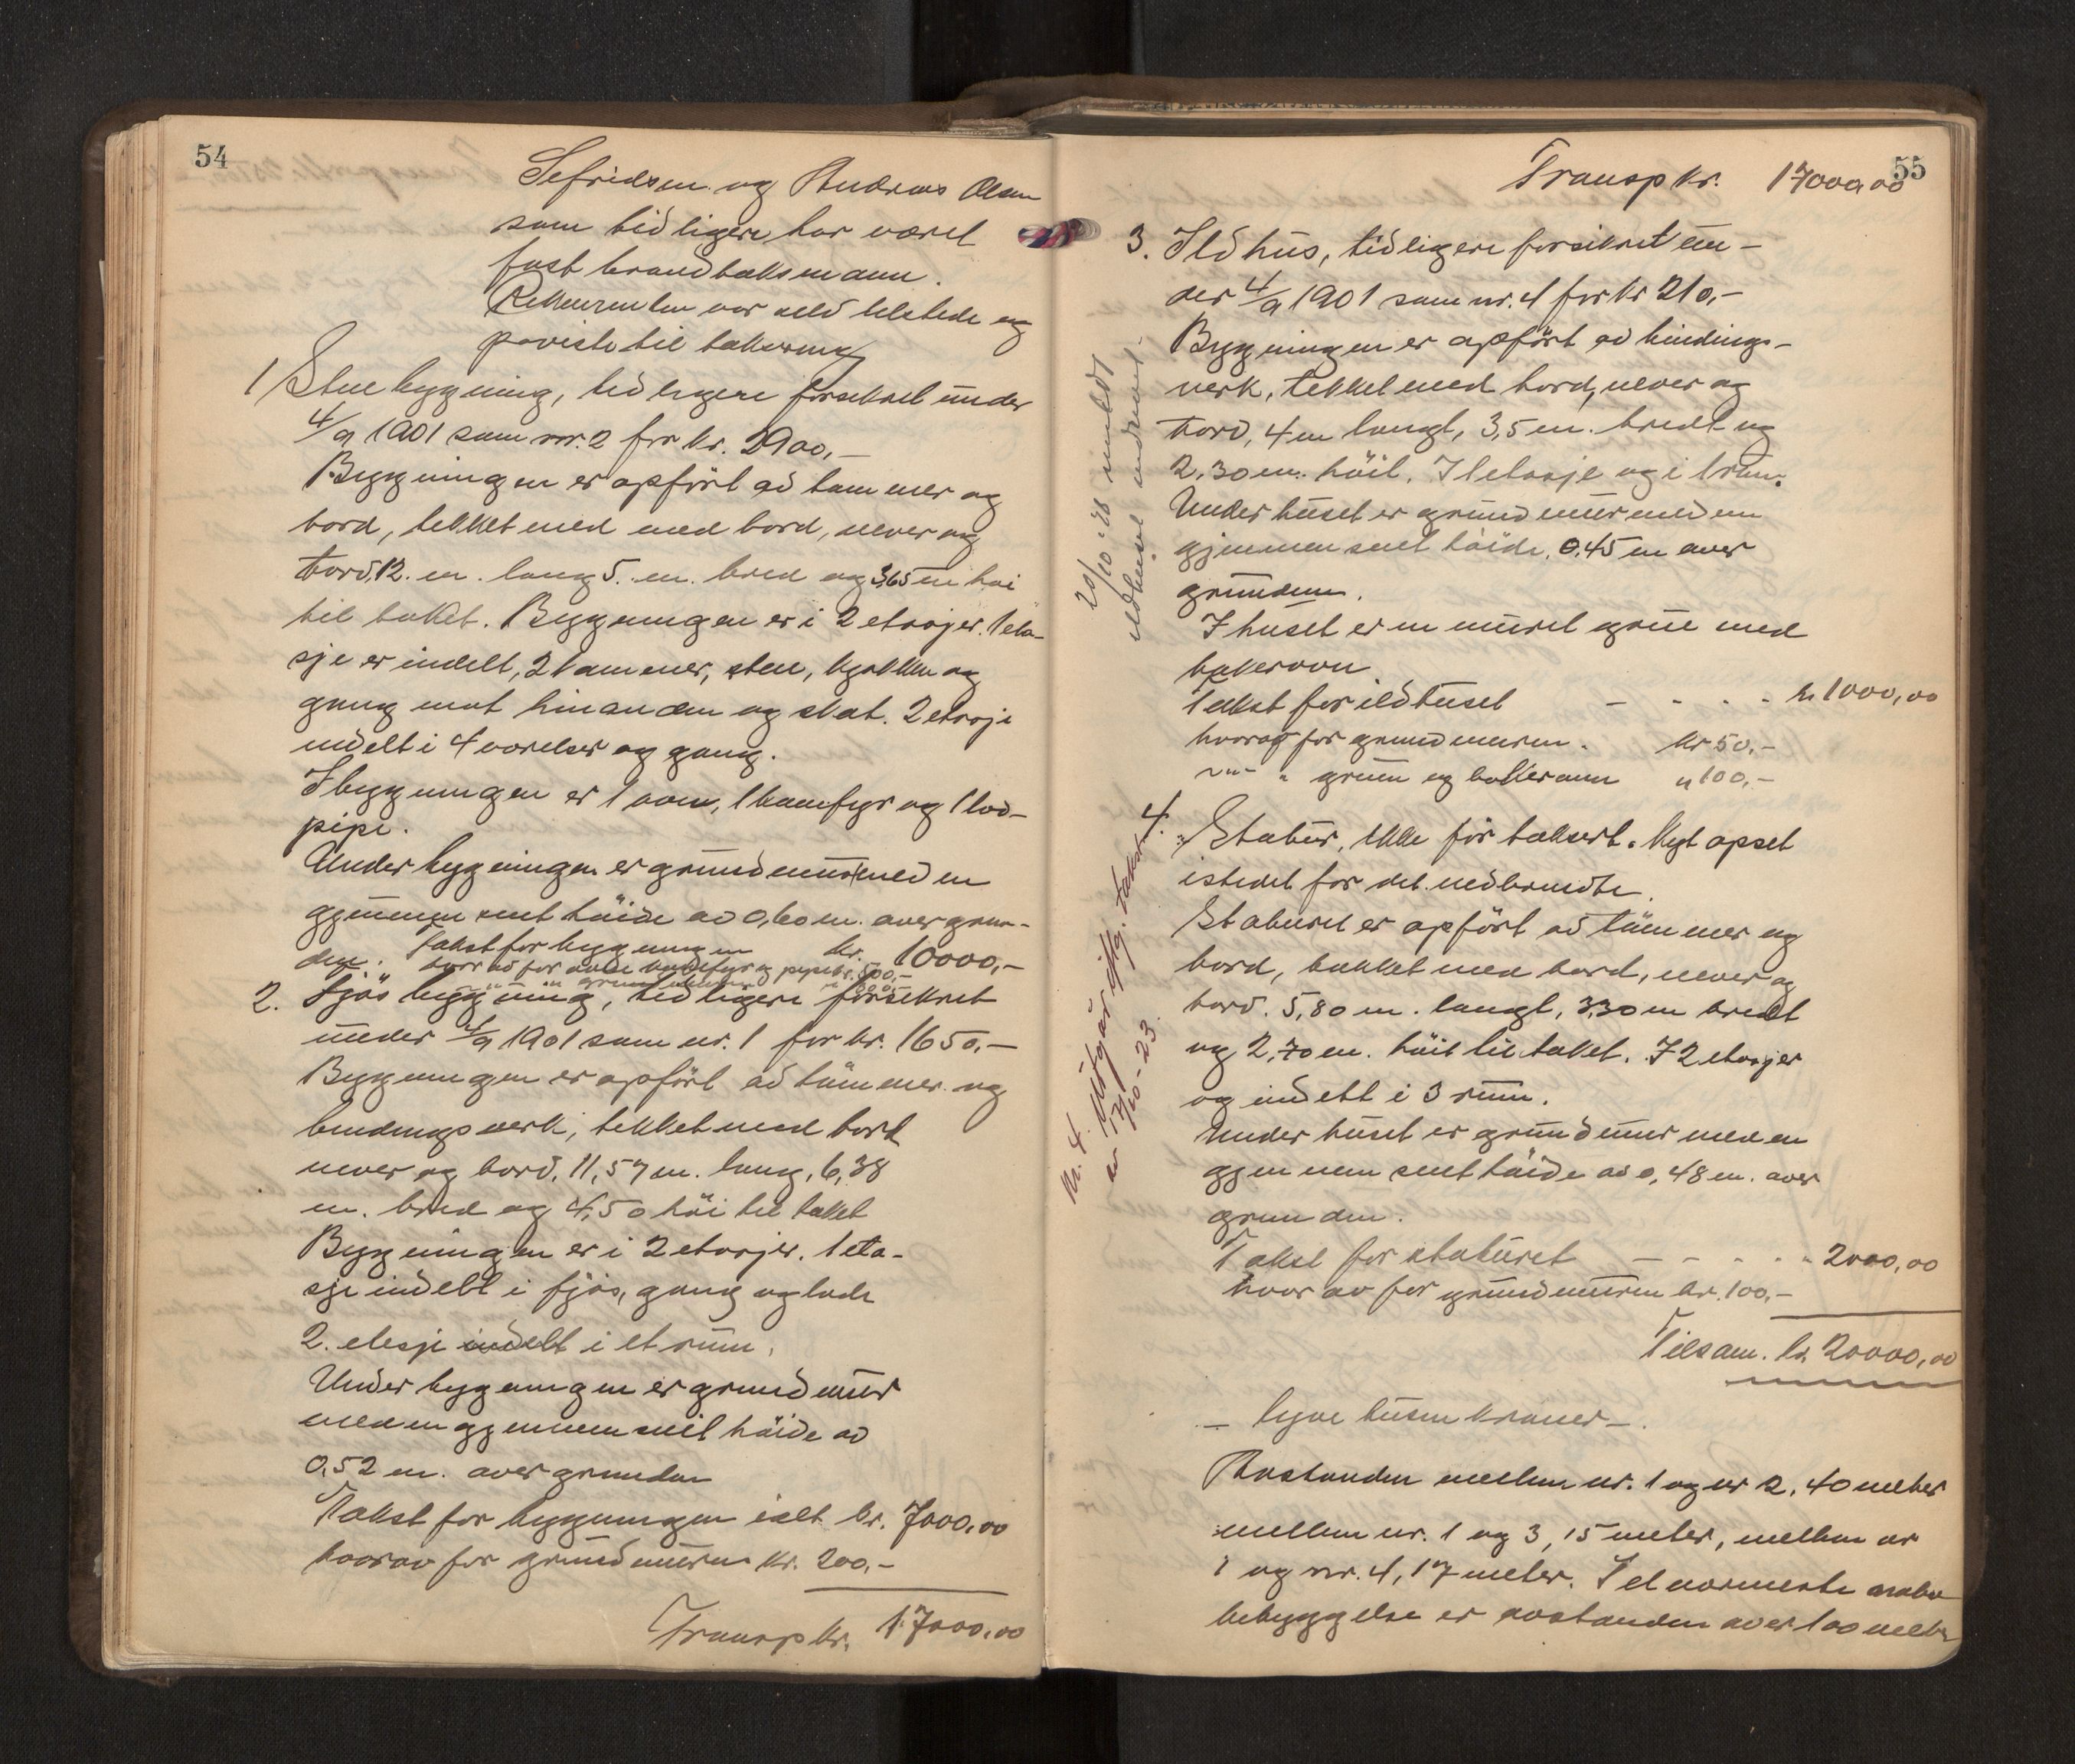 54
Sefridsen og Andreas Olsen
som tidligere har været
fast brandtaksmann.
Rekvirenten var selv tilstede og
paviste til taksering
1/ Stuebygning, tidligere forsikret under
4/9 1901 som nr. 2 for kr. 2900,-
Bygningen er opført av tømmer og
bord, tekket med med bord, never og
torv. 12. m. lang 5. m. bred og 3,65 m høi
til taket. Bygningen er i 2 etasjer. 1 eta-
sje er indelt, 2 kammer, stue, kjøkken og
gang mot hinanden og skot. 2 etasje
indelt i 4 værelser og gang.
I bygningen er 1 ovn, 1 komfyr og 1 lod-
pipe.
Under bygningen er grundmur med en
gjennemsnit høide av 0,60 m. over grun-
den. Takst for bygningen kr. 10000,-
hvorav for ovne komfyr og pipe kr. 500,-
-"- " grundmuren " 300,-
2. Fjøsbygning, tidligere forsikret
under 4/9 1901 som nr. 1 for kr. 1650,-
Bygningen er opført av tømmer og
bindingsverk, tekket med bord
never og torv. 11,57 m. lang, 6,38
m. bred og 4,50 høi til taket
Bygningen er i 2 etasjer. 1 eta-
sje indelt i fjøs, gang og lade
2. etasje indelt i et rum.
Under bygningen er grundmur
med en gjennemsnit høide av
0,52 m. over grunden
Takst for bygningen ialt kr. 7000,00
hvorav for grundmuren kr. 200,-
Transp kr. 17000,00
55
Transp kr. 17000,00
3. Ildhus, tidligere forsikret un-
der 4/9 1901 som nr. 4 for kr 210,-
Bygningen er opført av bindings-
verk, tekket med bord, never og
torv, 4 m langt, 3,5 m. bredt og
2,30 m. høit. I 1 etasje og i 1 rum.
Under huset er grundmur med en
gjennemsnit høide, 0,45 m over
grunden.
I huset er en muret grue med
bakerovn
Takst for ildhuset - - - - kr 1000,00
hvorav for grundmuren. kr 50,-
-"- " gruen og bakerovn " 100,-
4. Stabur, ikke før taksert. Nyt opset
istedet for det nedbrendte.
Staburet er opført av tømmer og
bord, tekket med bord, never og
torv. 5,80 m. langt, 3,30 m bredt
og 2,70 m. høit til taket. I 2 etasjer
og indelt i 3 rum.
Under huset er grundmur med en
gjennemsnit høide av 0,48 m. over
grunden.
Takst for staburet - - - - " 2000,00
hvorav for grundmuren kr. 100,-
Tilsam. kr 20000,00
- tyve tusen kroner -.
Avstanden mellem nr. 1 og nr 2, 40 meter
mellem nr. 1 og 3, 15 meter, mellem nr
1 og nr. 4, 17 meter. Til nærmeste anden
bebyggelse er avstanden over 100 meter
20/10-28 meldt
ildhuset nedrevet.-
Nr. 4. Utgår iflg. takst
av 17/10-23.